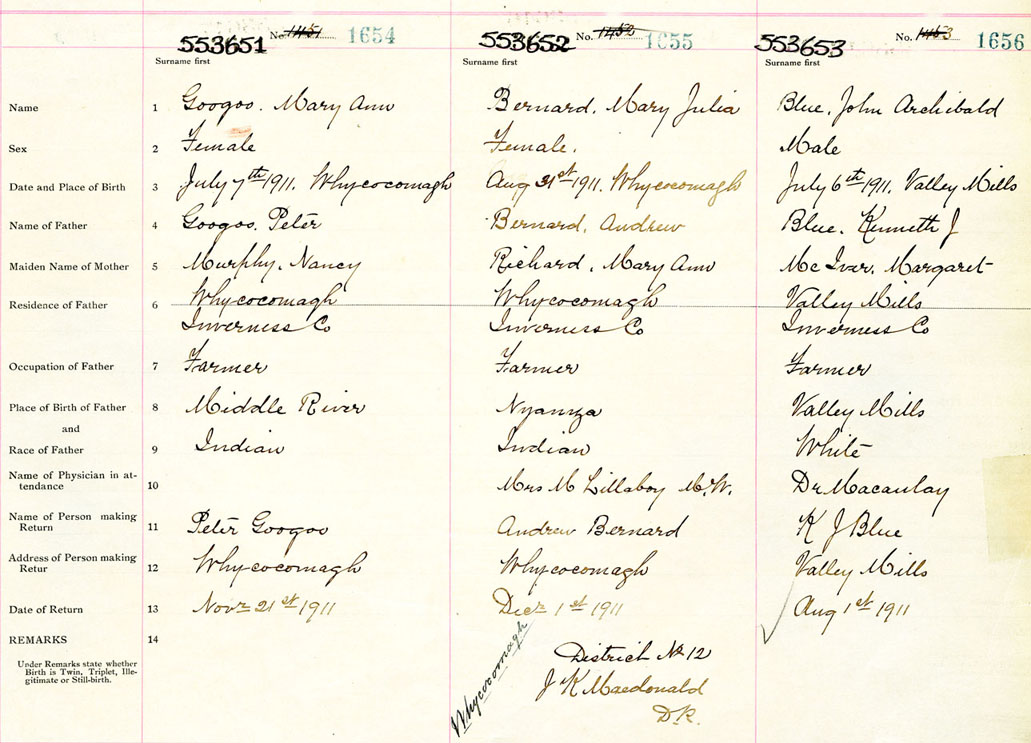 553651 No. 1451 1654 553652 No. 1452 1655 553653 No. 1453 1656
Surname first Surname first Surname first
Name 1 Googoo. Mary Ann Bernard. Mary Julia Blue. John Archibald
Sex 2 Female Female. Male
Date and Place of Birth 3 July 7th 1911. Whycocomagh Aug 31st 1911. Whycocomagh July 6th 1911. Valley Mills
Name of Father 4 Googoo. Peter Bernard. Andrew Blue. Kenneth J
Maiden Name of Mother 5 Murphy. Nancy Richard. Mary Ann Mc Ivar. Margaret
Residence of Father 6 Whycocomagh Whycocomagh Valley Mills
Inverness Co Inverness Co Inverness Co
Occupation of Father 7 Farmer Farmer Farmer
Place of Birth of Father 8 Middle River Nyanza Valley Mills
and
Race of Father 9 Indian Indian White
Name of Physician in at-
tendance 10 Mrs M Lillaboy M.W. Dr Macaulay
Name of Person making
Return 11 Peter Googoo Andrew Bernard K J Blue
Address of Person making
Retur 12 Whycocomagh Whycocomagh Valley Mills
Date of Return 13 Novr 21st 1911 Decr 1st 1911 Aug 1st 1911
REMARKS 14
Under Remarks state whether
Birth is Twin, Triplet, Ille-
gitimate or Still-birth.
Whycocomagh
District No 12
J K Macdonald
D.R.